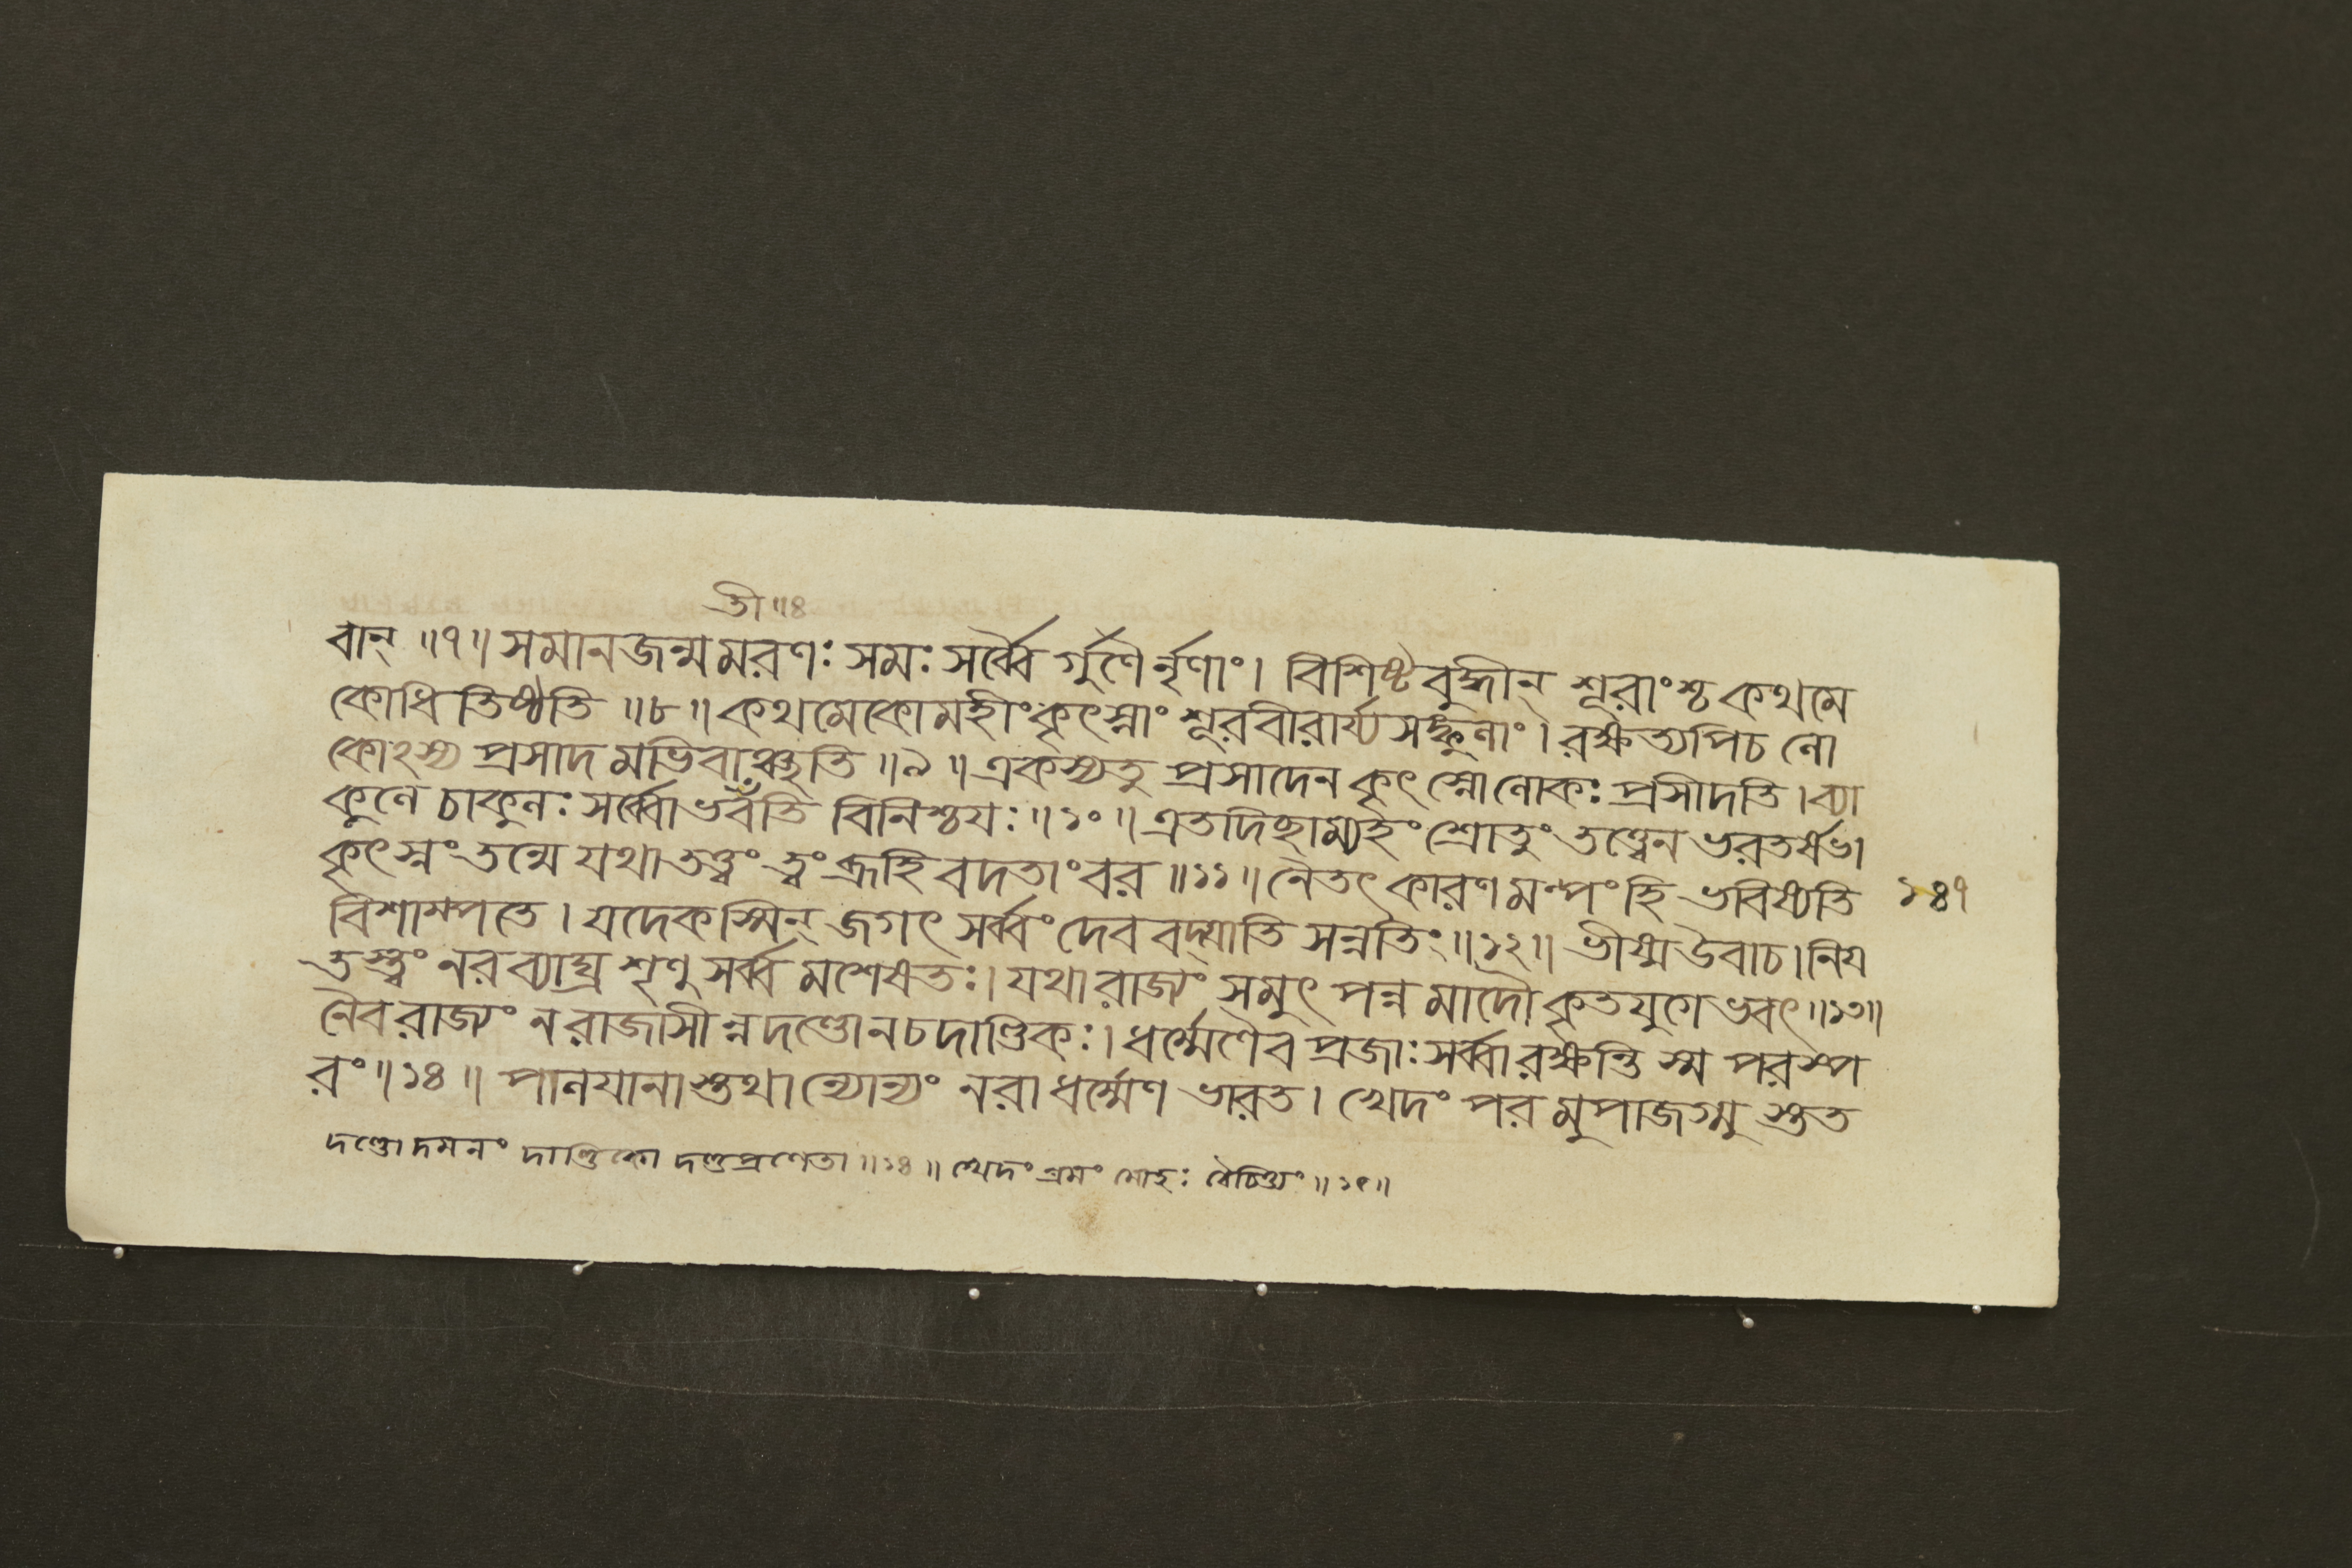 তী॥৪
বান্ ॥৭॥ সমানজন্মমরণঃ সমঃ সর্ব্বৈর্গুণৈর্নৃণাং। বিশিষ্টবুদ্ধীন্ শূরাংশ্চ কথমে
কোধি তিষ্ঠতি ॥৮॥ কথমেকো মহীংকৃৎস্নাং শূরবীরার্য্য সঙ্কুলাং। রক্ষত্যপিচ লো
কোঽস্য প্রসাদ মভিবাঞ্ছতি ॥৯॥ একস্যতু প্রসাদেন কৃৎস্নোলোকঃ প্রসীদতি।ব্যা
কুলে চাকুলঃ সর্ব্বোভবতি বিনিশ্চযঃ॥১০॥ এতদিচ্ছাম্যহং শ্রোতুং তত্ত্বেন ভরতর্ষভ।
কৃৎস্নং তন্মে যথাতত্ত্বং ত্বং ব্রূহি বদতাংবর ॥১১॥ নৈতৎ কারণমল্পং হি ভবিষ্যতি ১৪৭
বিশাম্পতে। যদেকস্মিন্ জগৎ সর্ব্বং দেববদ্যাতি সন্নতিং॥১২॥ ভীষ্মউবাচ।নিয
তস্ত্বং নরব্যাঘ্র শৃণু সর্ব্ব মশেষতঃ। যথারাজ্যং সমুৎপন্নমাদৌ কৃতযুগেভবৎ॥১৩॥
নৈবরাজ্যং নরাজাসীন্নদণ্ডোনচদাণ্ডিকঃ। ধর্ম্মেণৈবপ্রজাঃসর্ব্বারক্ষন্তি স্ম পরস্প
রং॥১৪॥ পালযানাস্তথান্যোন্যং নরাধর্ম্মেণ ভারত। খেদং পরমুপাজগ্মুস্তত
দণ্ডোদমনং দাণ্ডিকো দণ্ডপ্রণেতা॥১৪॥ খেদং শ্রমং মোহঃ বৈচিত্ত্যং॥১৫॥